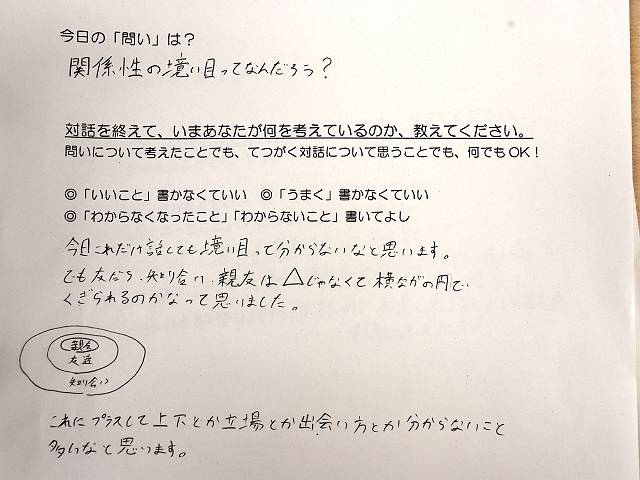 今日の「問い」は？
関係性の境い目ってなんだろう？
対話を終えて、いまあなたが何を考えているのか、教えてください。
問いについて考えたことでも、てつがく対話について思うことでも、何でもOK！
◎「いいこと」書かなくていい　◎「うまく」書かなくていい
◎「わからなくなったこと」「わからないこと」書いてよし
今日これだけ話しても境い目って分からないなと思います。
でも友だち・知り合い・親友は△じゃなくて横ながの円で、
くぎられるのかなって思いました。
親友
友達
知り合い
これにプラスして上下とか立場とか出会い方とか分からないこと
多いなと思います。